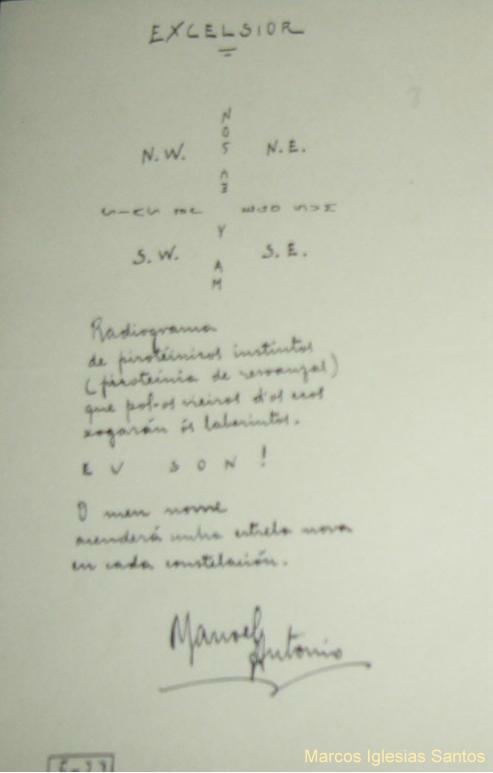 EXCELSIOR
N.W. N.E.
S.W. S.E.
Radiograma
de pirotécnicos instintos
(pirotecnia de
que pol-os vieiros d'os ecos
xogarán ós laberintos.
EU SON !
O meu nome
acenderá unha estrela nova
en cada constelación.
Manoel
Antonio
Marcos Iglesias Santos